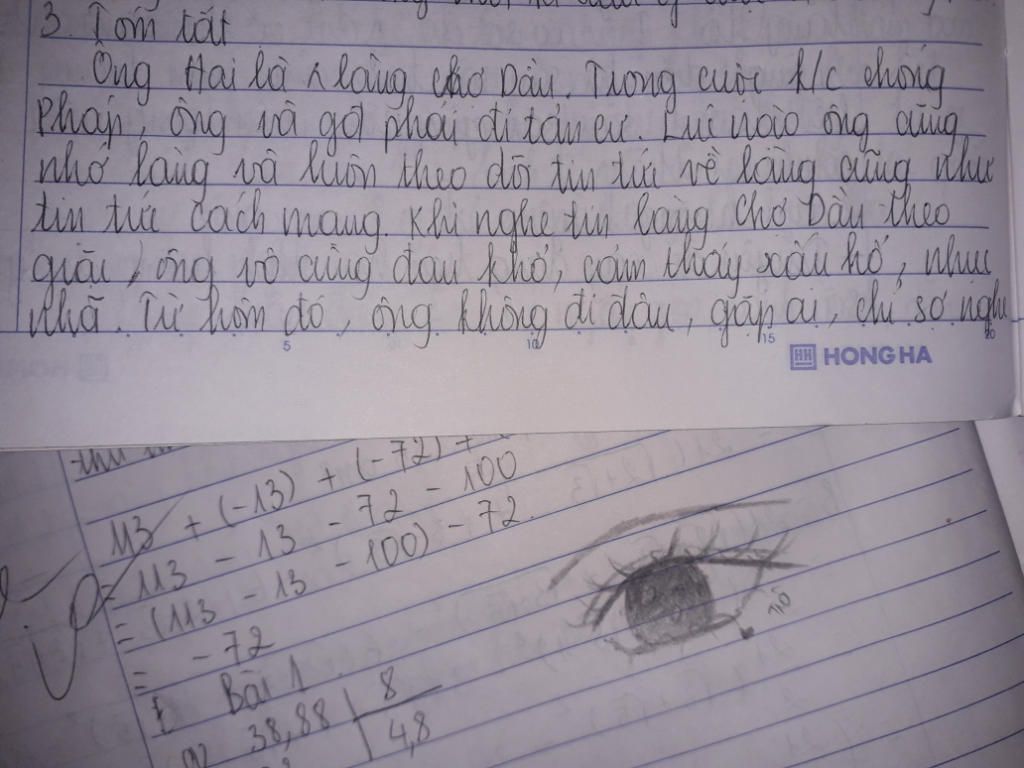 3. Tóm tắt
Ông Hai là ^ làng chợ Dầu. Trong cuộc k/c chống
Pháp, ông và gđ phải đi tản cư. Lúc nào ông cũng
nhớ làng và luôn theo dõi tin tức về làng cũng như
tin tức cách mạng. Khi nghe tin làng Chợ Dầu theo
giặc, ông vô cùng đau khổ, cảm thấy xấu hổ, nhục
nhã. Từ hôm đó, ông không đi đâu, gặp ai, chỉ sợ nghe
5 10 15 20
HH HONG HA
113 + (-13) + (-72) +
= 113 - 13 - 72 - 100
= (113 - 13 - 100) - 72.
= -72
Bài 1
38,88 8
4,8